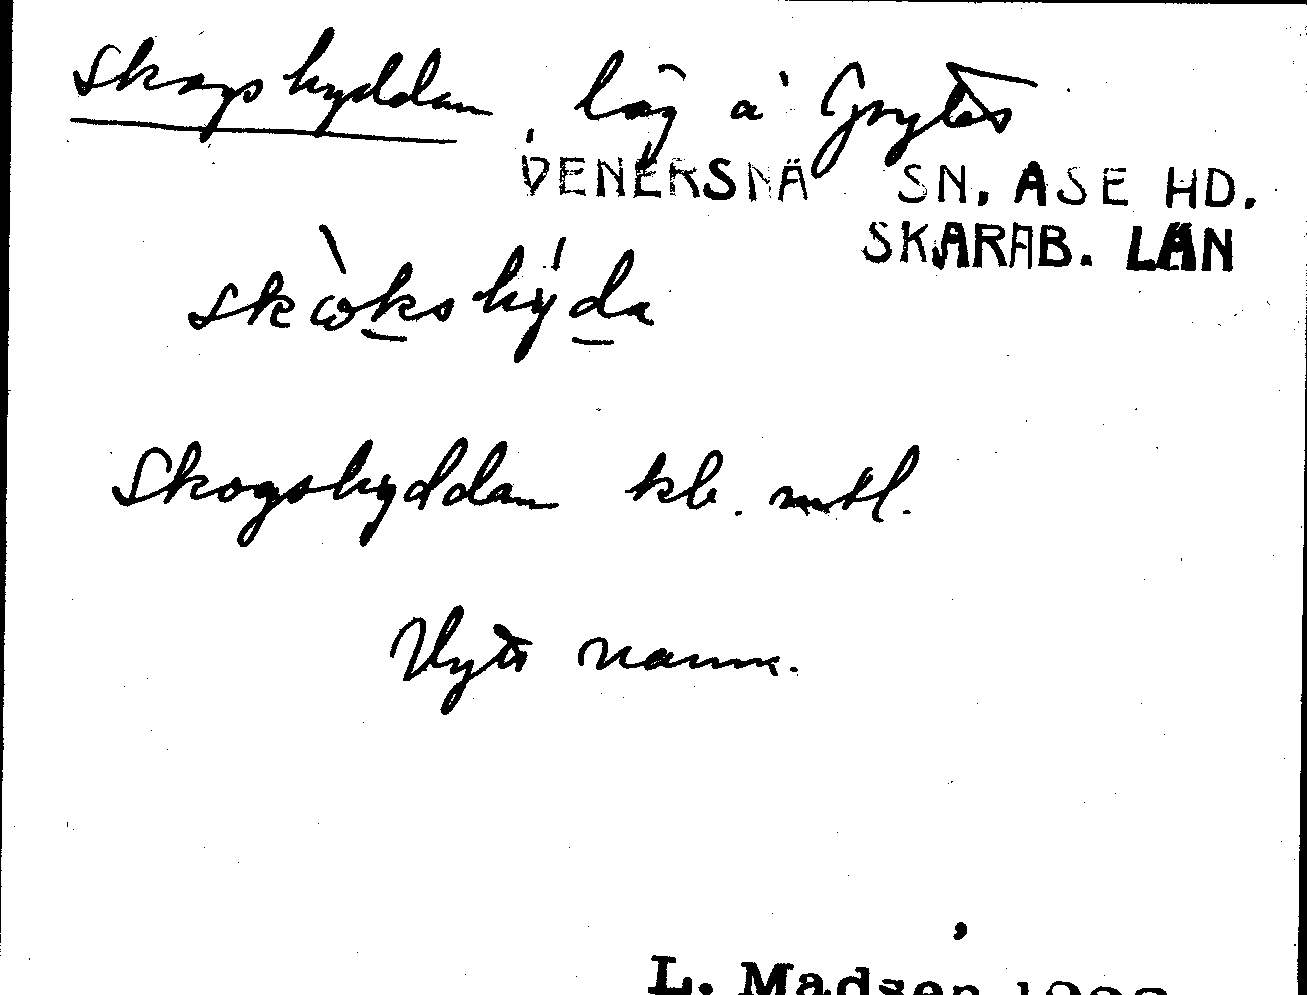 Skogshyddan, låg å Grytes
VENERSNÄ SN. ASE HD.
SKARAB. LÄN
skὼkshýda
Skogshyddan kb. mtl.
namn.
L. Madsen